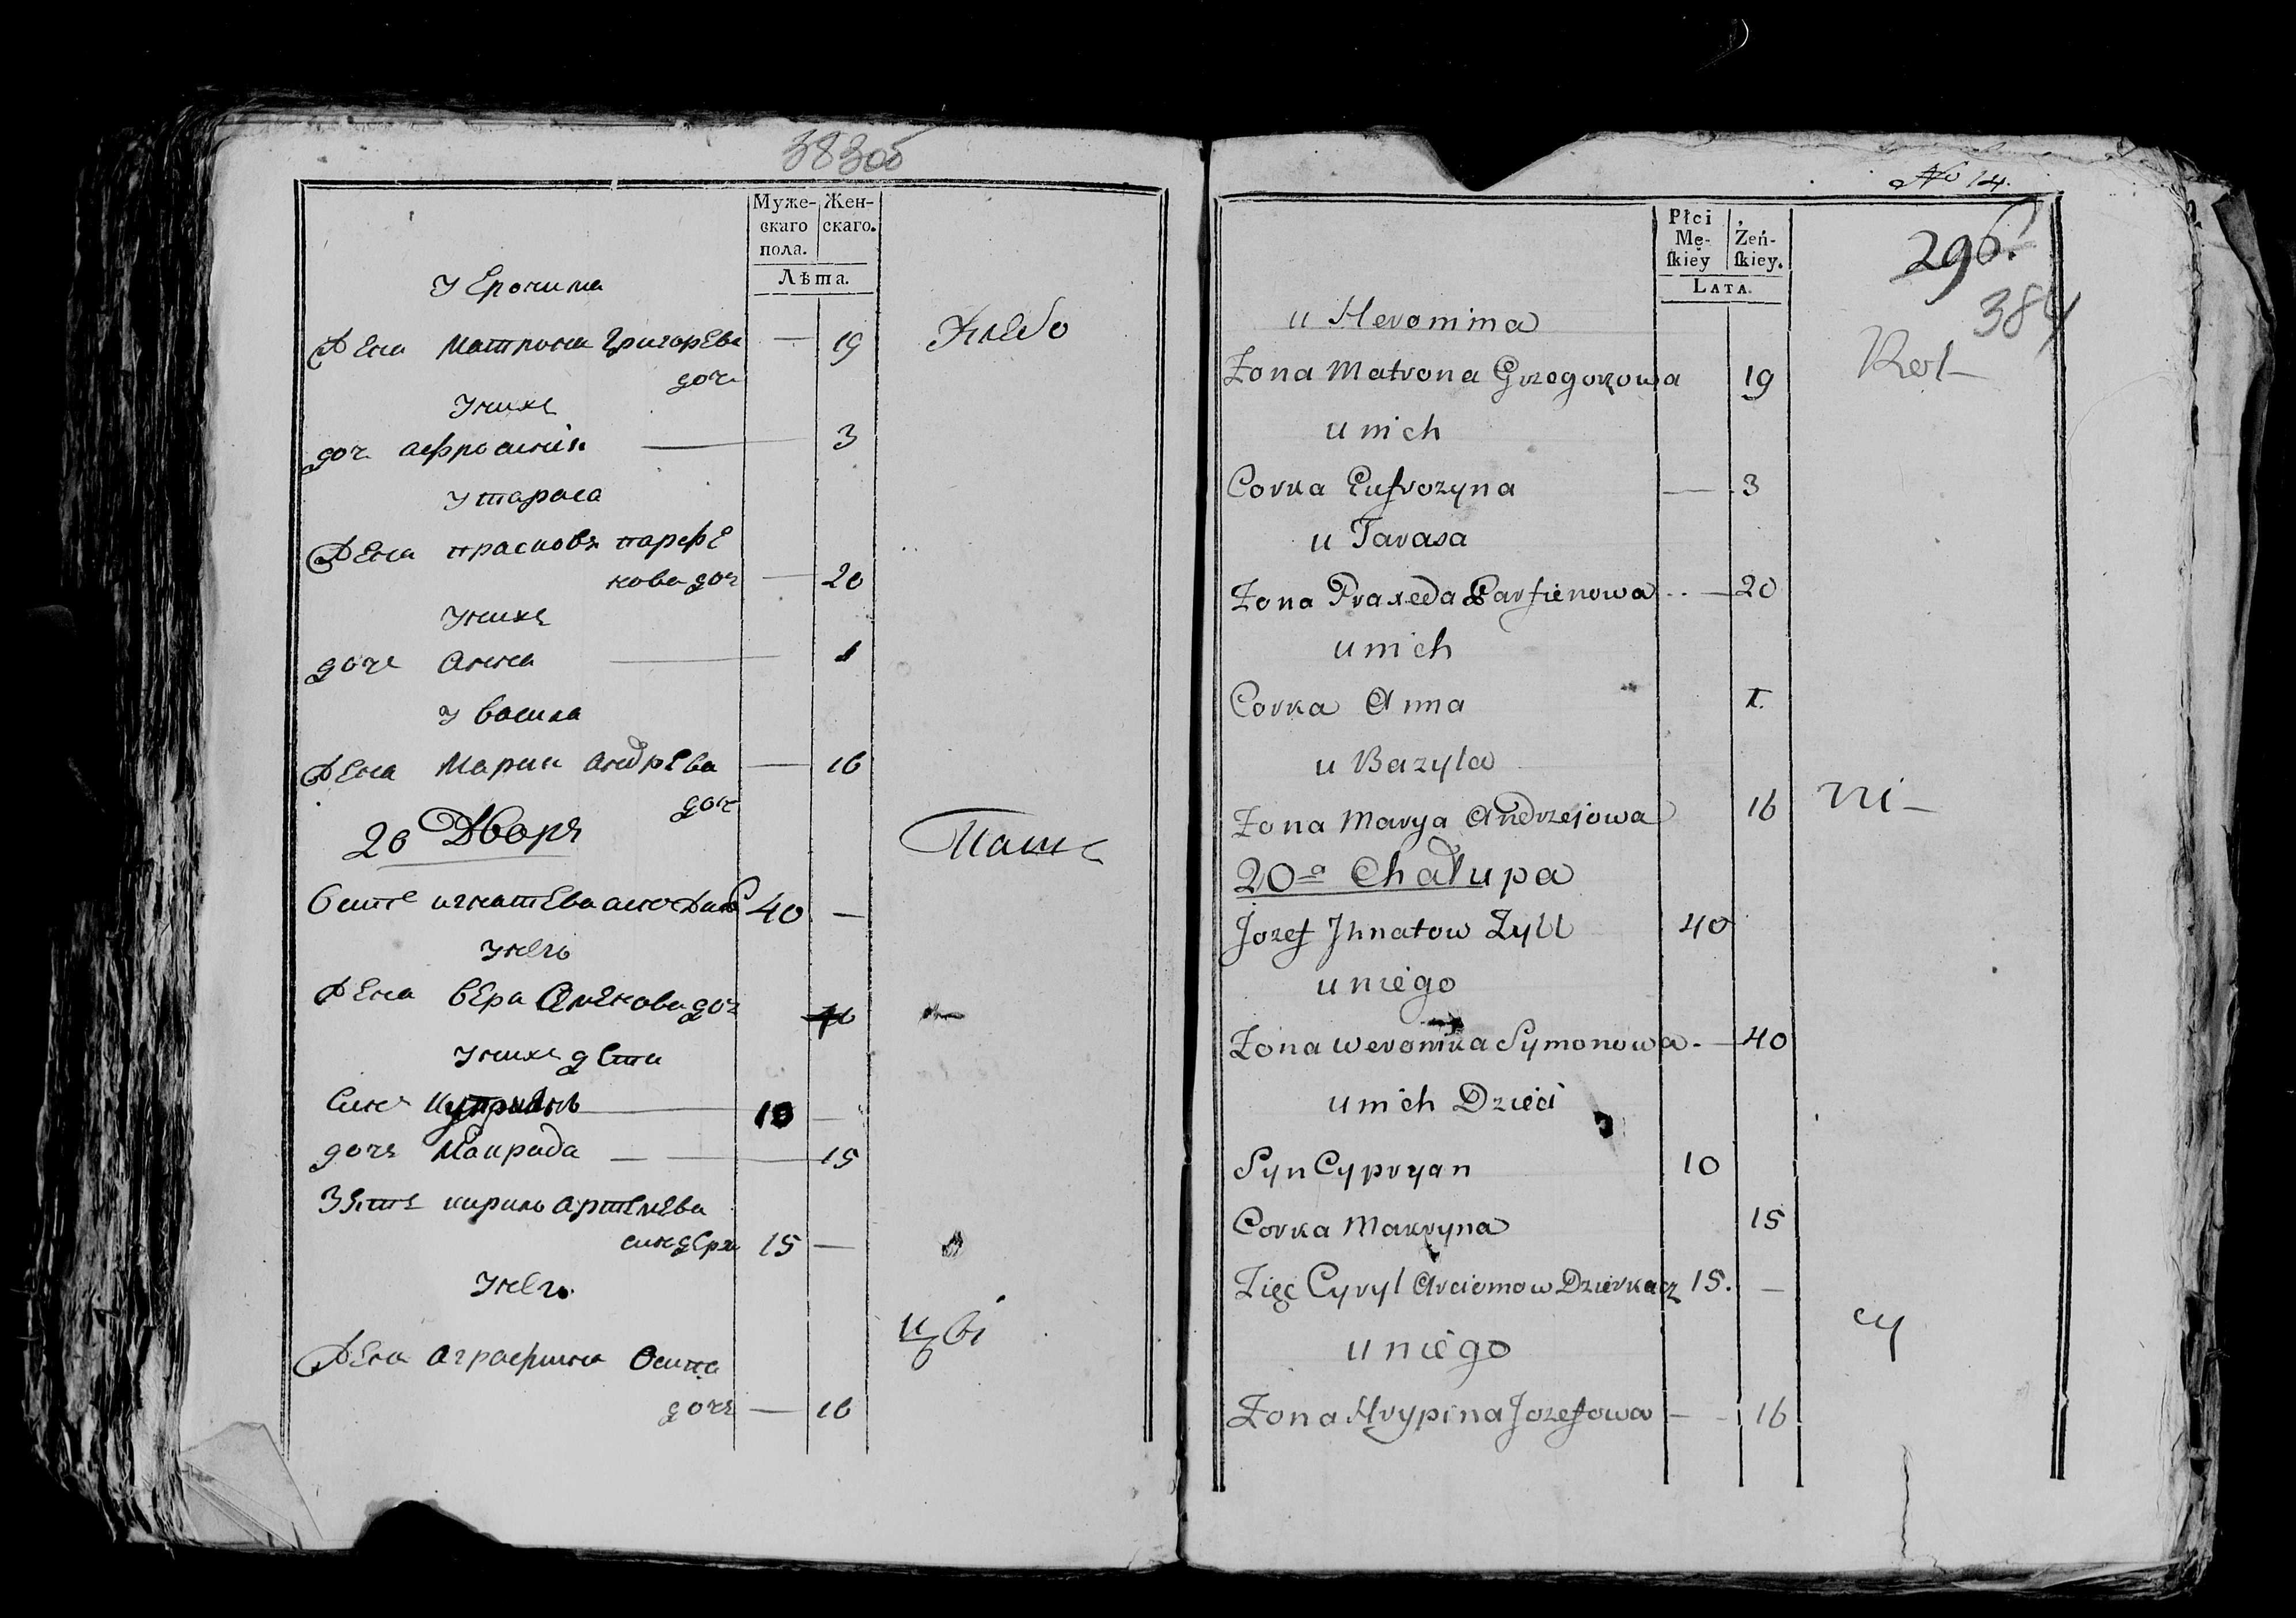 383об
Муже- Жен-
скаго скаго.
пола.
Лѣта.
У Ерочима
Жена Матрона Григорева — 19
доч
Уних
доч Афросинія — 3
У тараса
Жена прасковя парфе
нова доч — 20
Унихъ
дочь Анна — 1
У васила
Жена Мария андрѣва — 16
доч
20 Дворъ
Осипъ игнатѣва 40 —
Унего
Жена вера доч 40
Унихъ дети
Синъ Куприянъ 10 —
дочь Макрида — 15
Зять кирило артемева
15 —
Унего
Жена аграфина Осипа
дочь — 16
Хлебо
Паше
цві
№ 14.
296.
384
Płci Żeń-
Mę- skiey.
skiey
LATA.
u Heronima
Żona Matrona Grzegorzowa 19
u nich
Corka Eufrozyna — 3
u Tarasa
Żona Praxeda Parfienowa — 20
u nich
Corka Anna 1.
u Bazyla
Żona Marya Andrzejowa 16
20a Chałupa
Jozef Jhnatow Żyll 40
u niego
Żona Weronika Symonowa — 40
u nich Dzieci
Syn Cypryan 10
Corka Makryna 15
Zięć Cyryl Arciomow Dzierkacz 15. —
u niego
Żona Hrypina Jozefowa — 16
Rol—
ni—
cy